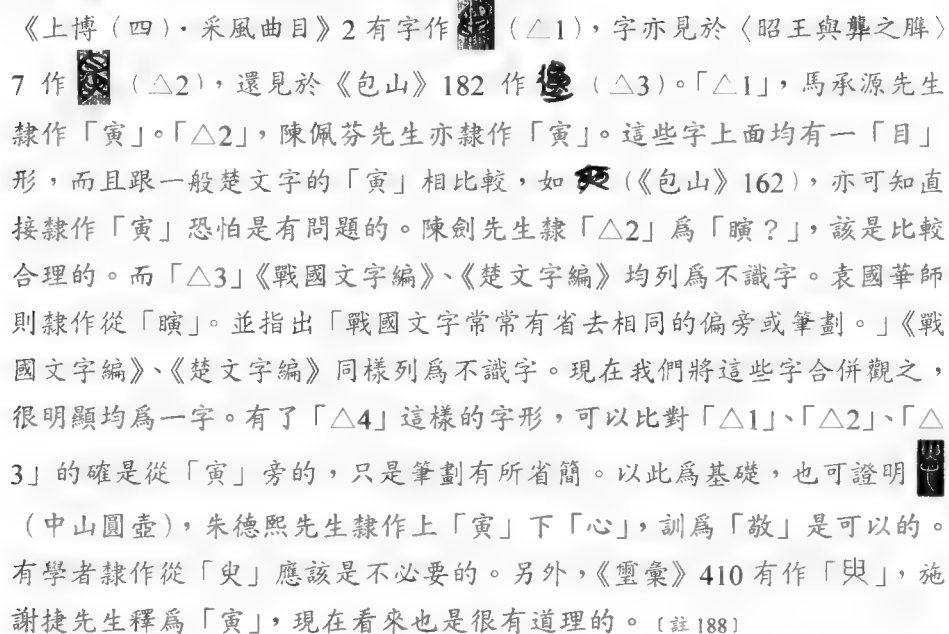 《上博（四）·采風曲目》2 有字作（△1），字亦見於〈昭王與龔之脽〉
7 作（△2），還見於《包山》182 作（△3）。「△1」，馬承源先生
隸作「寅」。「△2」，陳佩芬先生亦隸作「寅」。這些字上面均有一「目」
形，而且跟一般楚文字的「寅」相比較，如（《包山》162），亦可知直
接隸作「寅」恐怕是有問題的。陳劍先生隸「△2」為「瞚？」，該是比較
合理的。而「△3」《戰國文字編》、《楚文字編》均列為不識字。袁國華師
則隸作從「瞚」。並指出「戰國文字常常有省去相同的偏旁或筆劃。」《戰
國文字編》、《楚文字編》同樣列為不識字。現在我們將這些字合併觀之，
很明顯均為一字。有了「△4」這樣的字形，可以比對「△1」、「△2」、「△
3」的確是從「寅」旁的，只是筆劃有所省簡。以此為基礎，也可證明
（中山圓壺），朱德熙先生隸作上「寅」下「心」，訓為「敬」是可以的。
有學者隸作從「臾」應該是不必要的。另外，《璽彙》410 有作「」，施
謝捷先生釋為「寅」，現在看來也是很有道理的。〔註 188〕